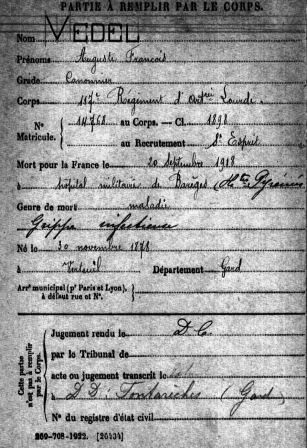 PARTIE À REMPLIR PAR LE CORPS.
Nom VEDEL
Prénoms Auguste François
Grade Canonnier
Corps 117e Régiment d'Artrie Lourde.
N° Matricule. 14768 au Corps. — Cl. 1898
au Recrutement St Esprit
Mort pour la France le 20 septembre 1918
à hôpital militaire de Barèges (Htes Pyrénées
Genre de mort maladie
Grippe infectieuse
Né le 30 novembre 1878
à Département Gard
Arrt municipal (pr Paris et Lyon), à défaut rue et N°.
Cette partie n'est pas à remplir par le Corps.
Jugement rendu le D.C.
par le Tribunal de
acte ou jugement transcrit le
à D.D: Fontarèches (Gard)
N° du registre d'état civil
269-708-1922. [26434]